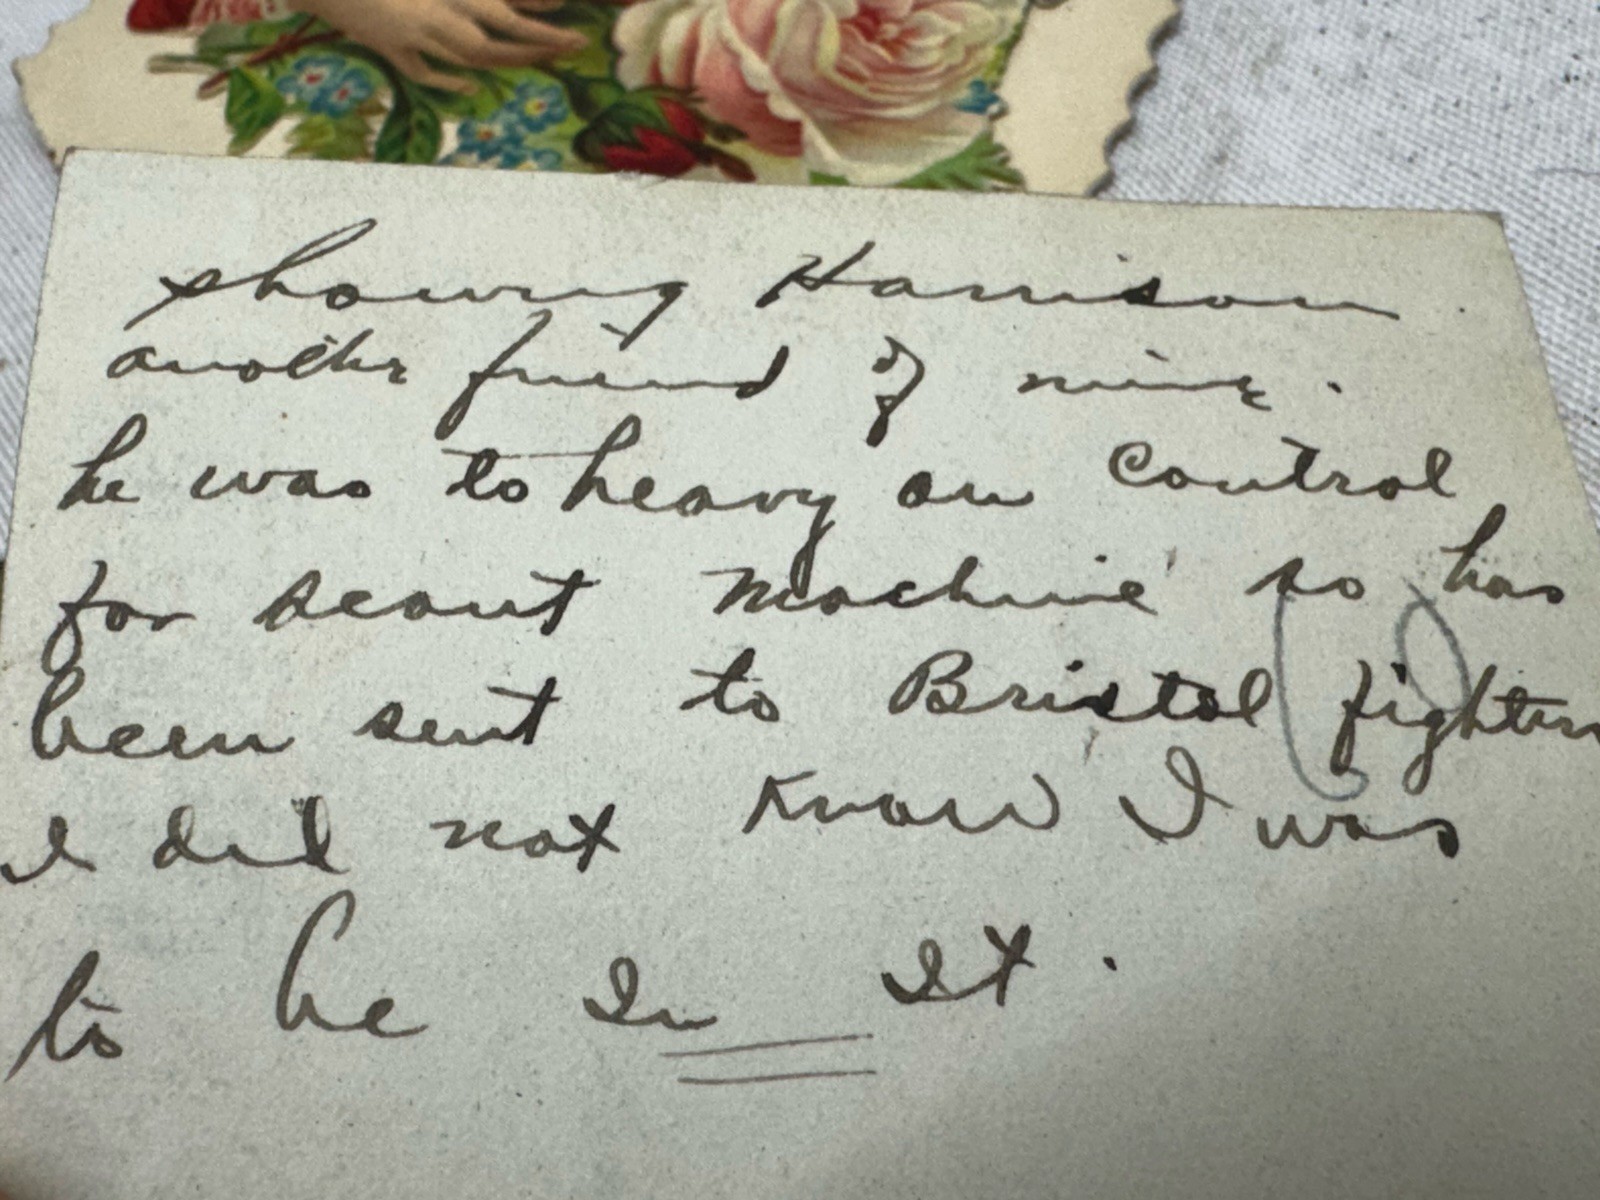 showing Harrison
another friend of mine.
he was to heavy on control
for scout machine so has
been sent to Bristol fighters
I did not know I was
to be In It.